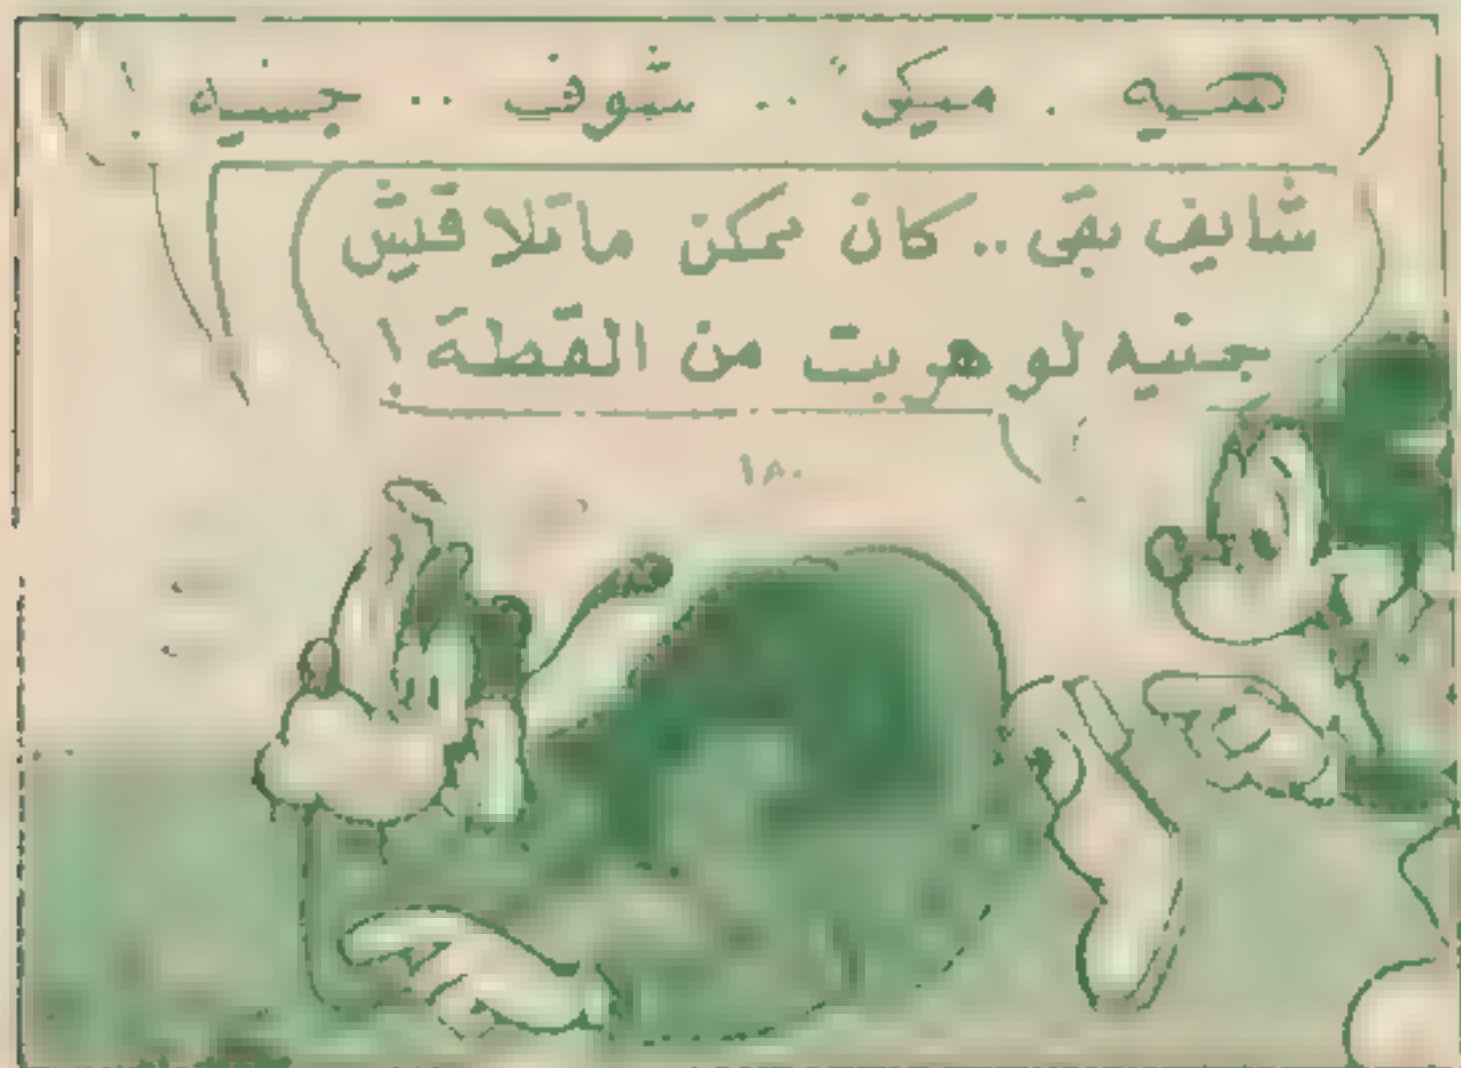 هيه . ميكى .. شوف .. جنيه
شايف بقى .. كان ممكن ماتلاقيش
جنيه لو هربت من القطة !
١٨٠